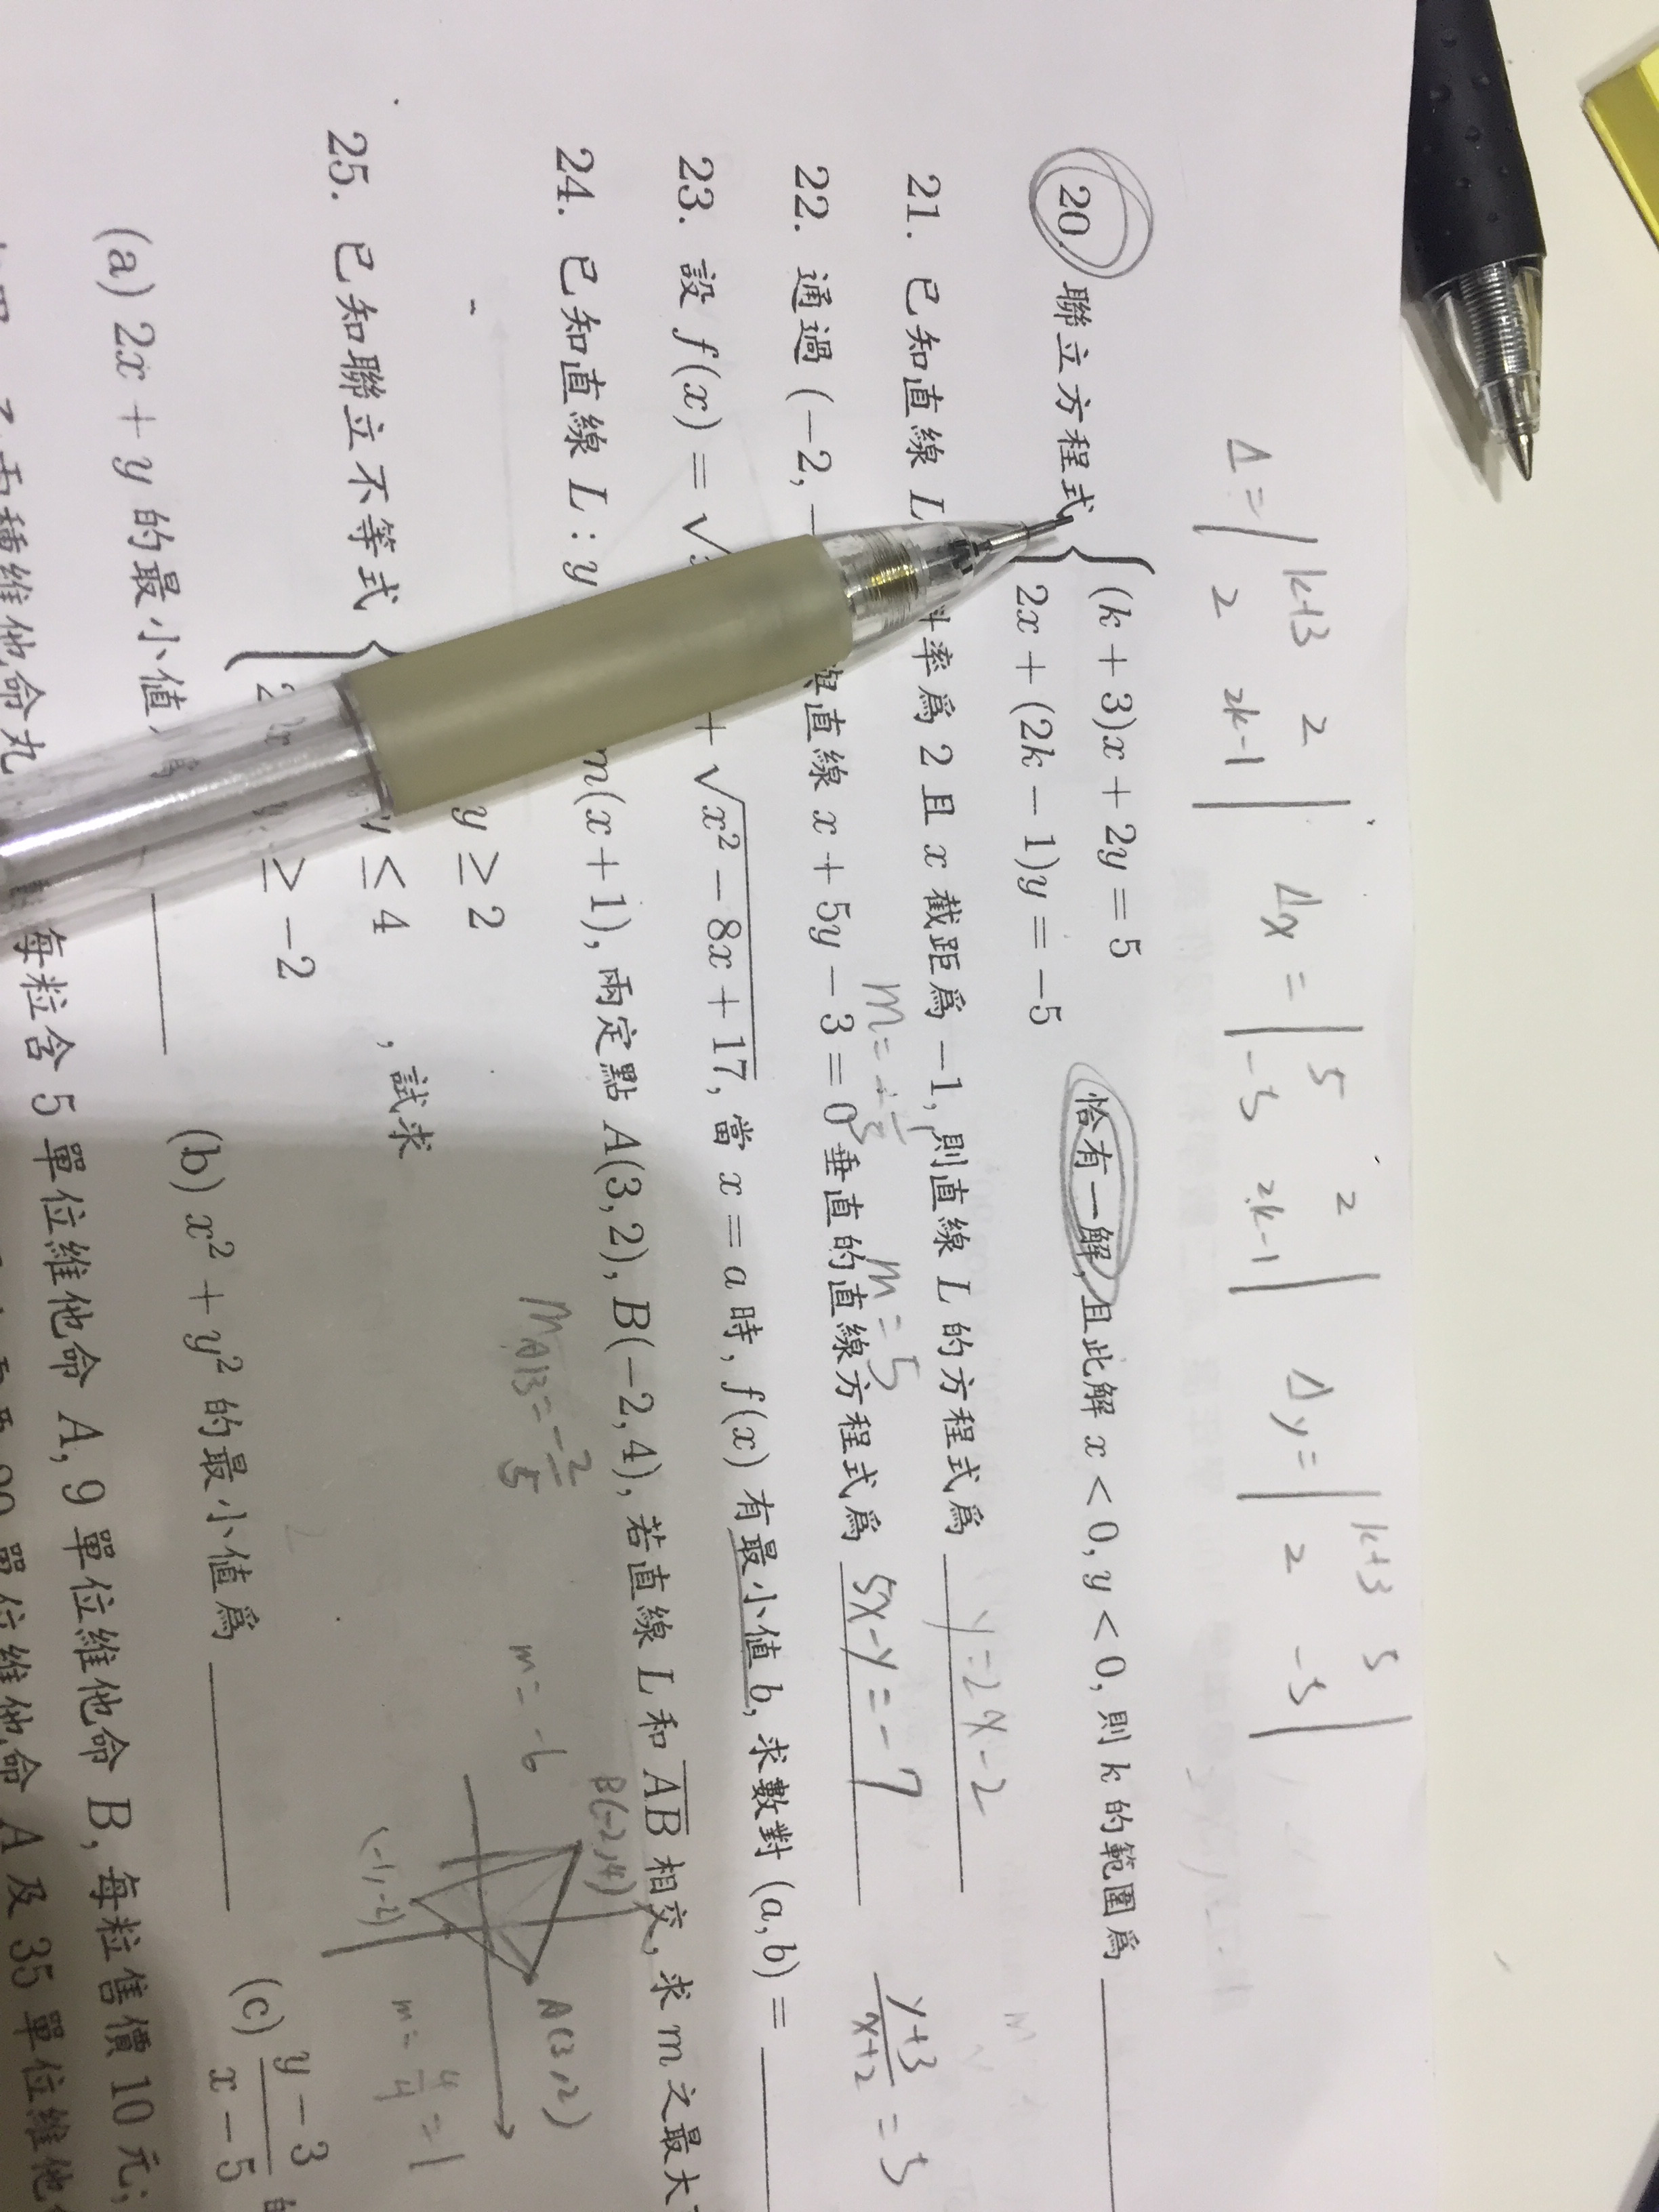 Δ = | k+3 2 | Δx = | 5 2 | Δy = | k+3 5 |
| 2 2k-1 | | -5 2k-1 | | 2 -5 |
20. 聯立方程式 { (k + 3)x + 2y = 5
2x + (2k − 1)y = −5 恰有一解, 且此解 x < 0, y < 0, 則 k 的範圍爲
21. 已知直線 L 斜率爲 2 且 x 截距爲 −1, 則直線 L 的方程式爲 y=2x-2
m= m=5
22. 通過 (−2, 直線 x + 5y − 3 = 0 垂直的直線方程式爲 5x-y=-7
y+3/x+2 = 5
23. 設 f(x) = √ + √x² − 8x + 17, 當 x = a 時, f(x) 有最小值 b, 求數對 (a, b) =
24. 已知直線 L : y m(x + 1), 兩定點 A(3, 2), B(−2, 4), 若直線 L 和 AB 相交, 求 m 之最大
mAB = -2/5 m=-6 B(-2,4) A(3,2)
(-1,-2) m=4/4=1
y ≥ 2
25. 已知聯立不等式 { y ≤ 4 , 試求
≥ −2
(a) 2x + y 的最小值 (b) x² + y² 的最小值爲 (c) y − 3/x − 5
種維他命丸 每粒含 5 單位維他命 A, 9 單位維他命 B, 每粒售價 10 元;
單位維他命 A 及 35 單位維他